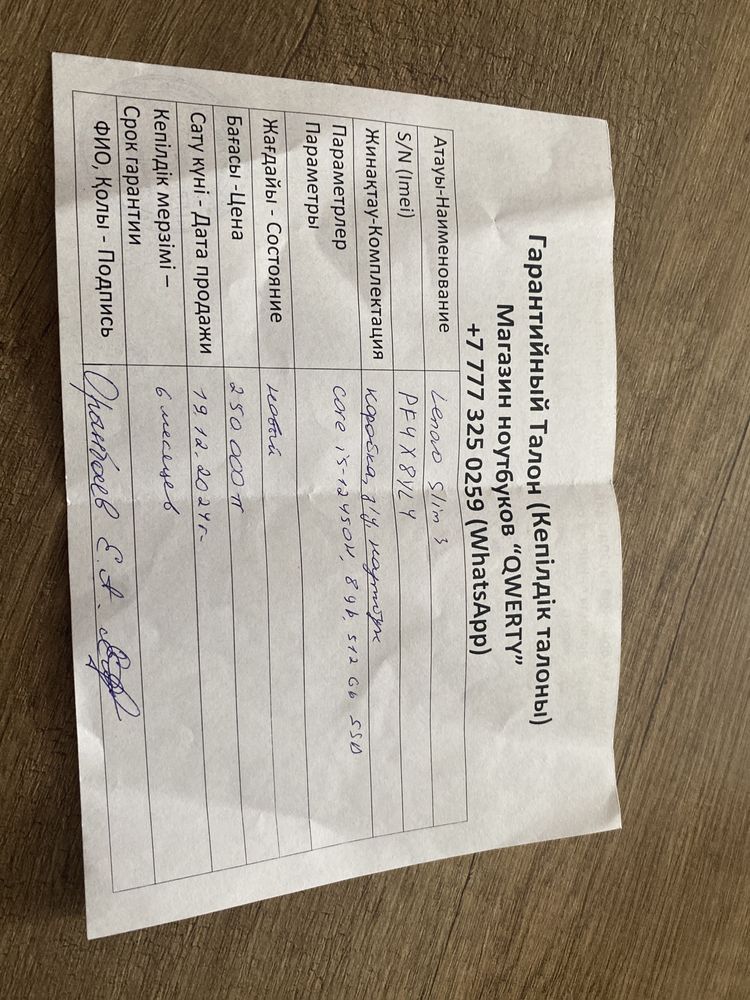 Гарантийный Талон (Кепілдік талоны)
Магазин ноутбуков “QWERTY”
+7 777 325 0259 (WhatsApp)
Атауы-Наименование Lenovo Slim 3
S/N (Imei) PF4X8VL4
Жинақтау-Комплектация коробка, з/у, ноутбук
Параметрлер core i5-12450H, 8gb, 512 Gb SSD
Параметры
Жағдайы - Состояние новый
Бағасы -Цена 250 000 тг
Сату күні - Дата продажи 19.12.2024г.
Кепілдік мерзімі – 6 месяцев
Срок гарантии
ФИО, Қолы - Подпись Е.А.